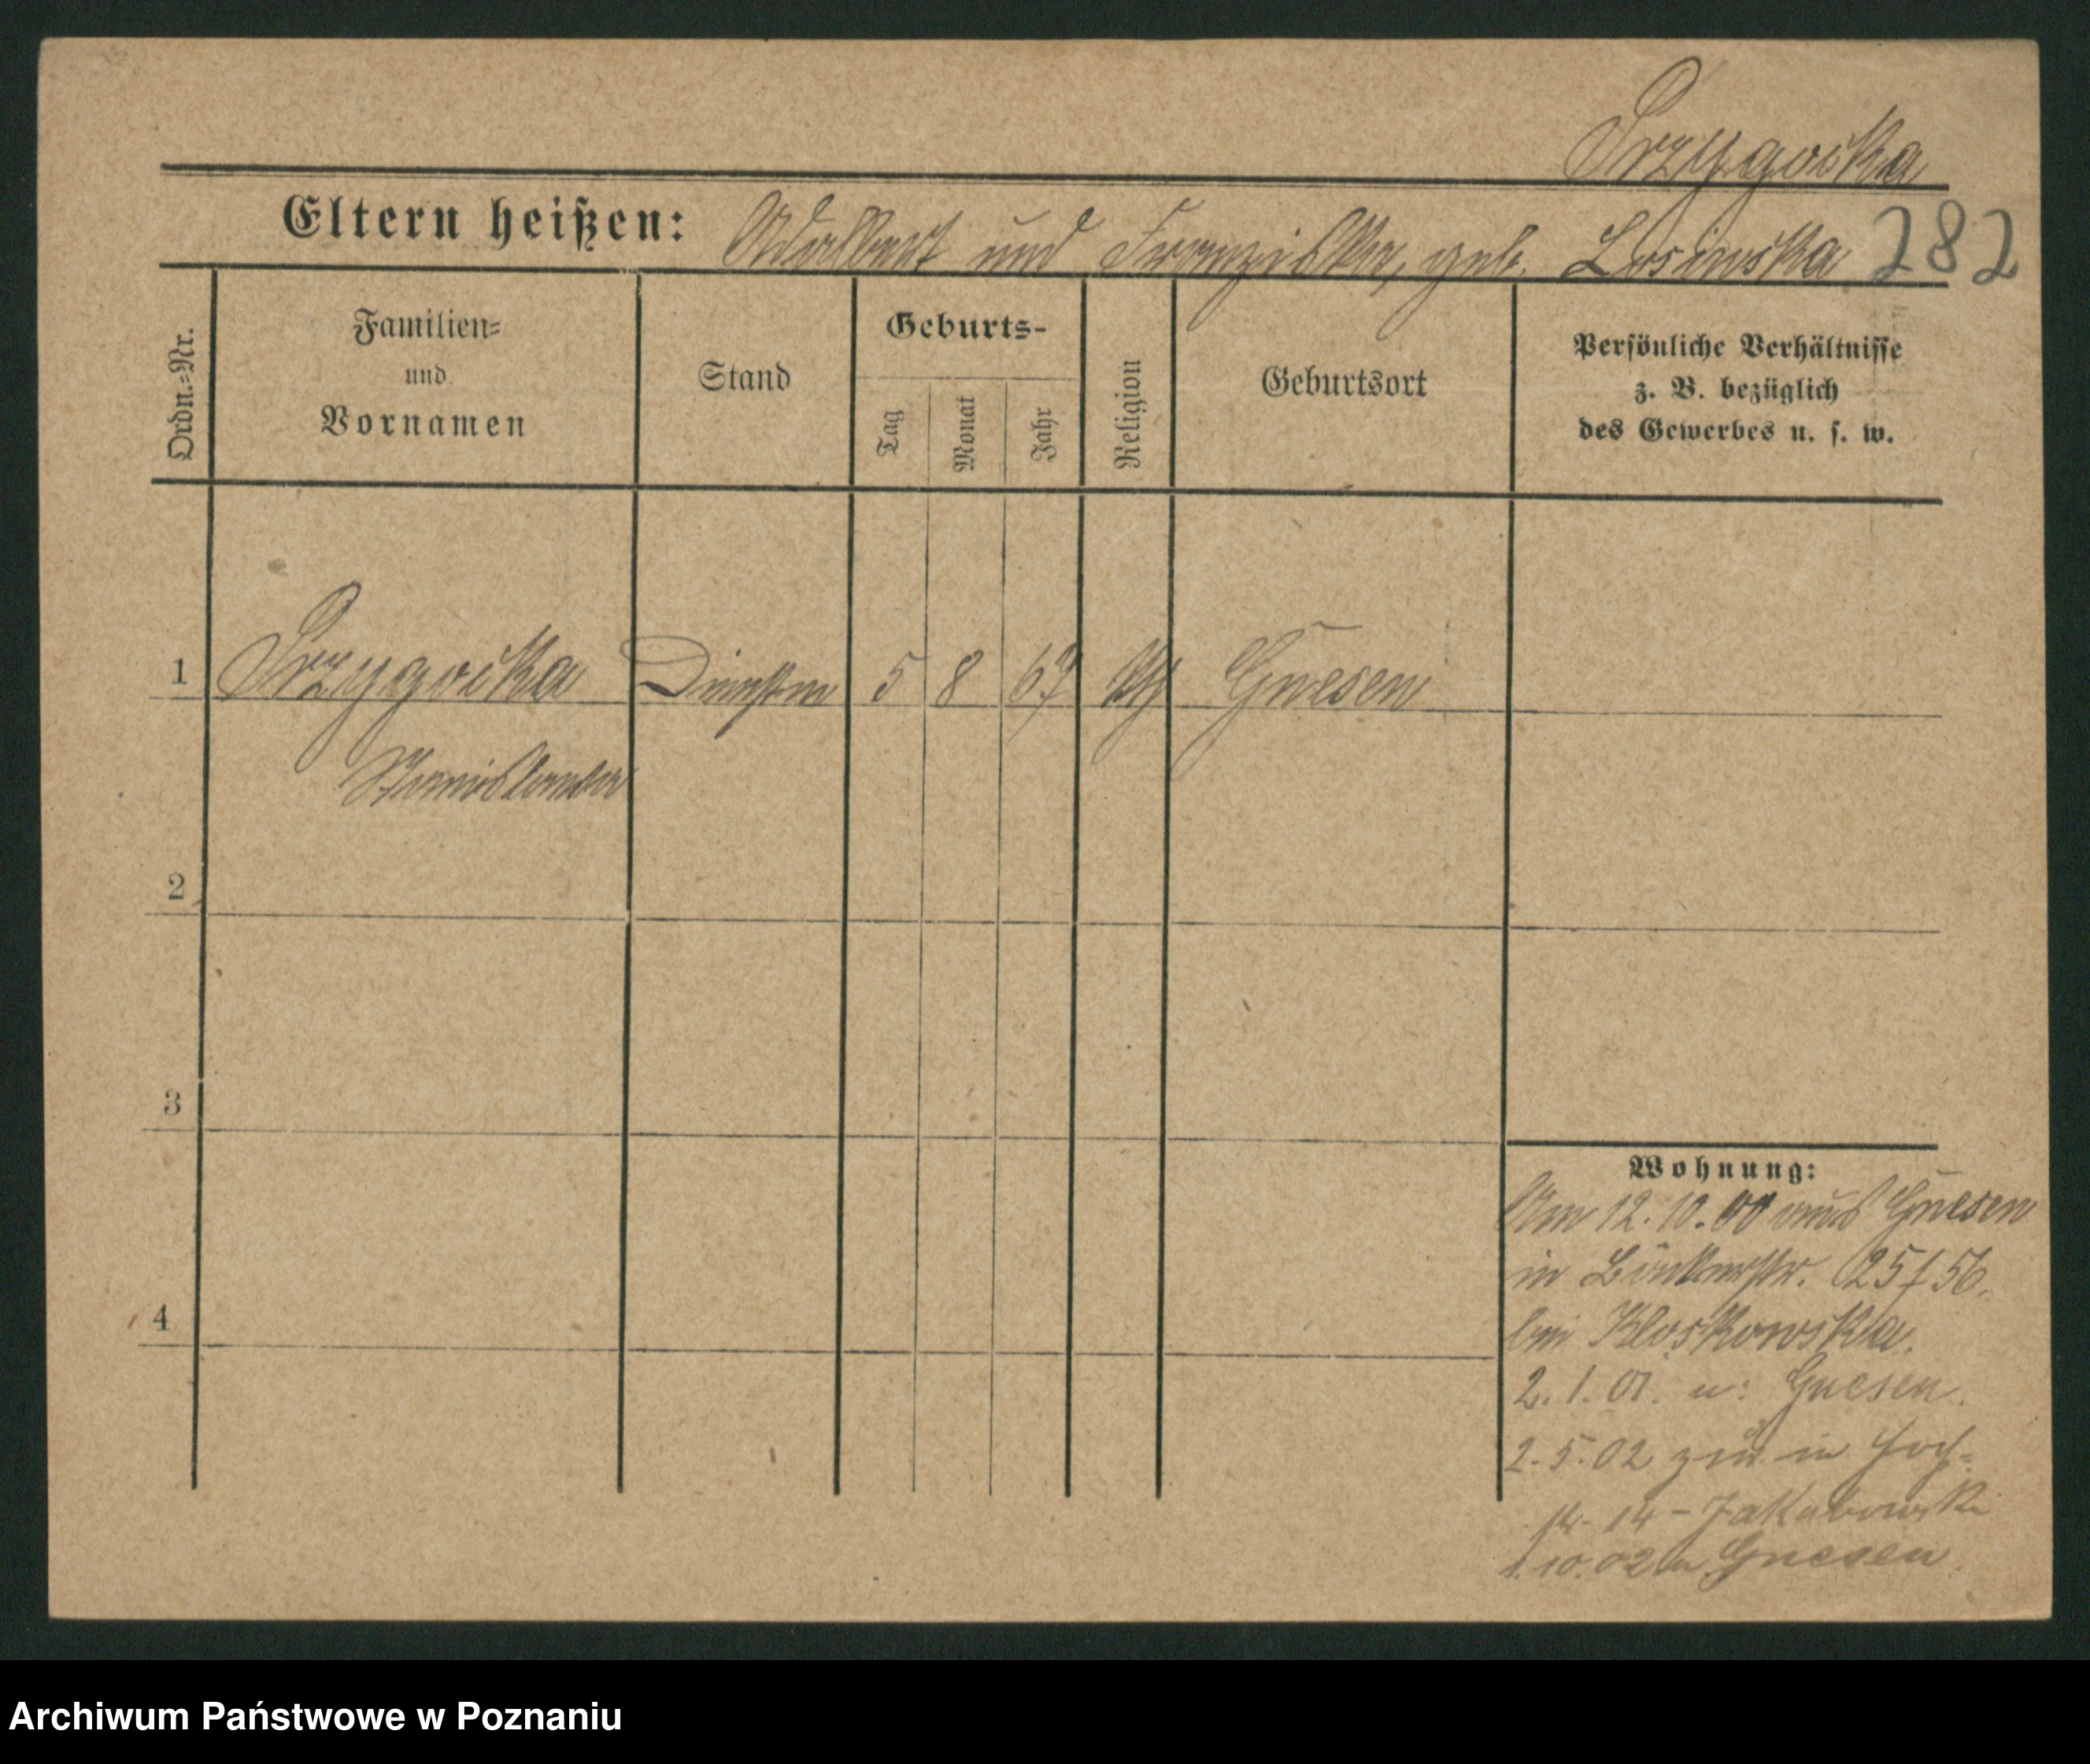 Przygocka
Eltern heißen: Adalbert und Franziska, geb. Losinska 282
Ordn.=Nr.
Familien=
und
Vornamen
Stand
Geburts-
Tag
Monat
Jahr
Religion
Geburtsort
Persönliche Verhältnisse
z. B. bezüglich
des Gewerbes u. s. w.
1 Przygocka 5 8 67 kth Gnesen
Stanislawa
2
3
4
Wohnung:
Am 12.10.00 aus Gnesen
in 25 / 56.
bei Kloskowska.
2.1.01. n: Gnesen.
2.5.02 zur. in
str. 14 - Jakubowski
1.10.02 n Gnesen.
Archiwum Państwowe w Poznaniu